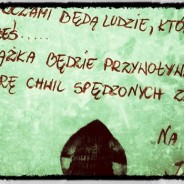 CZAMI BĘDĄ LUDZIE, KTÓ
EŚ.....
ĄŻKA BĘDZIE PRZYWOŁYW
RĘ CHWIL SPĘDZONYCH Z
NA